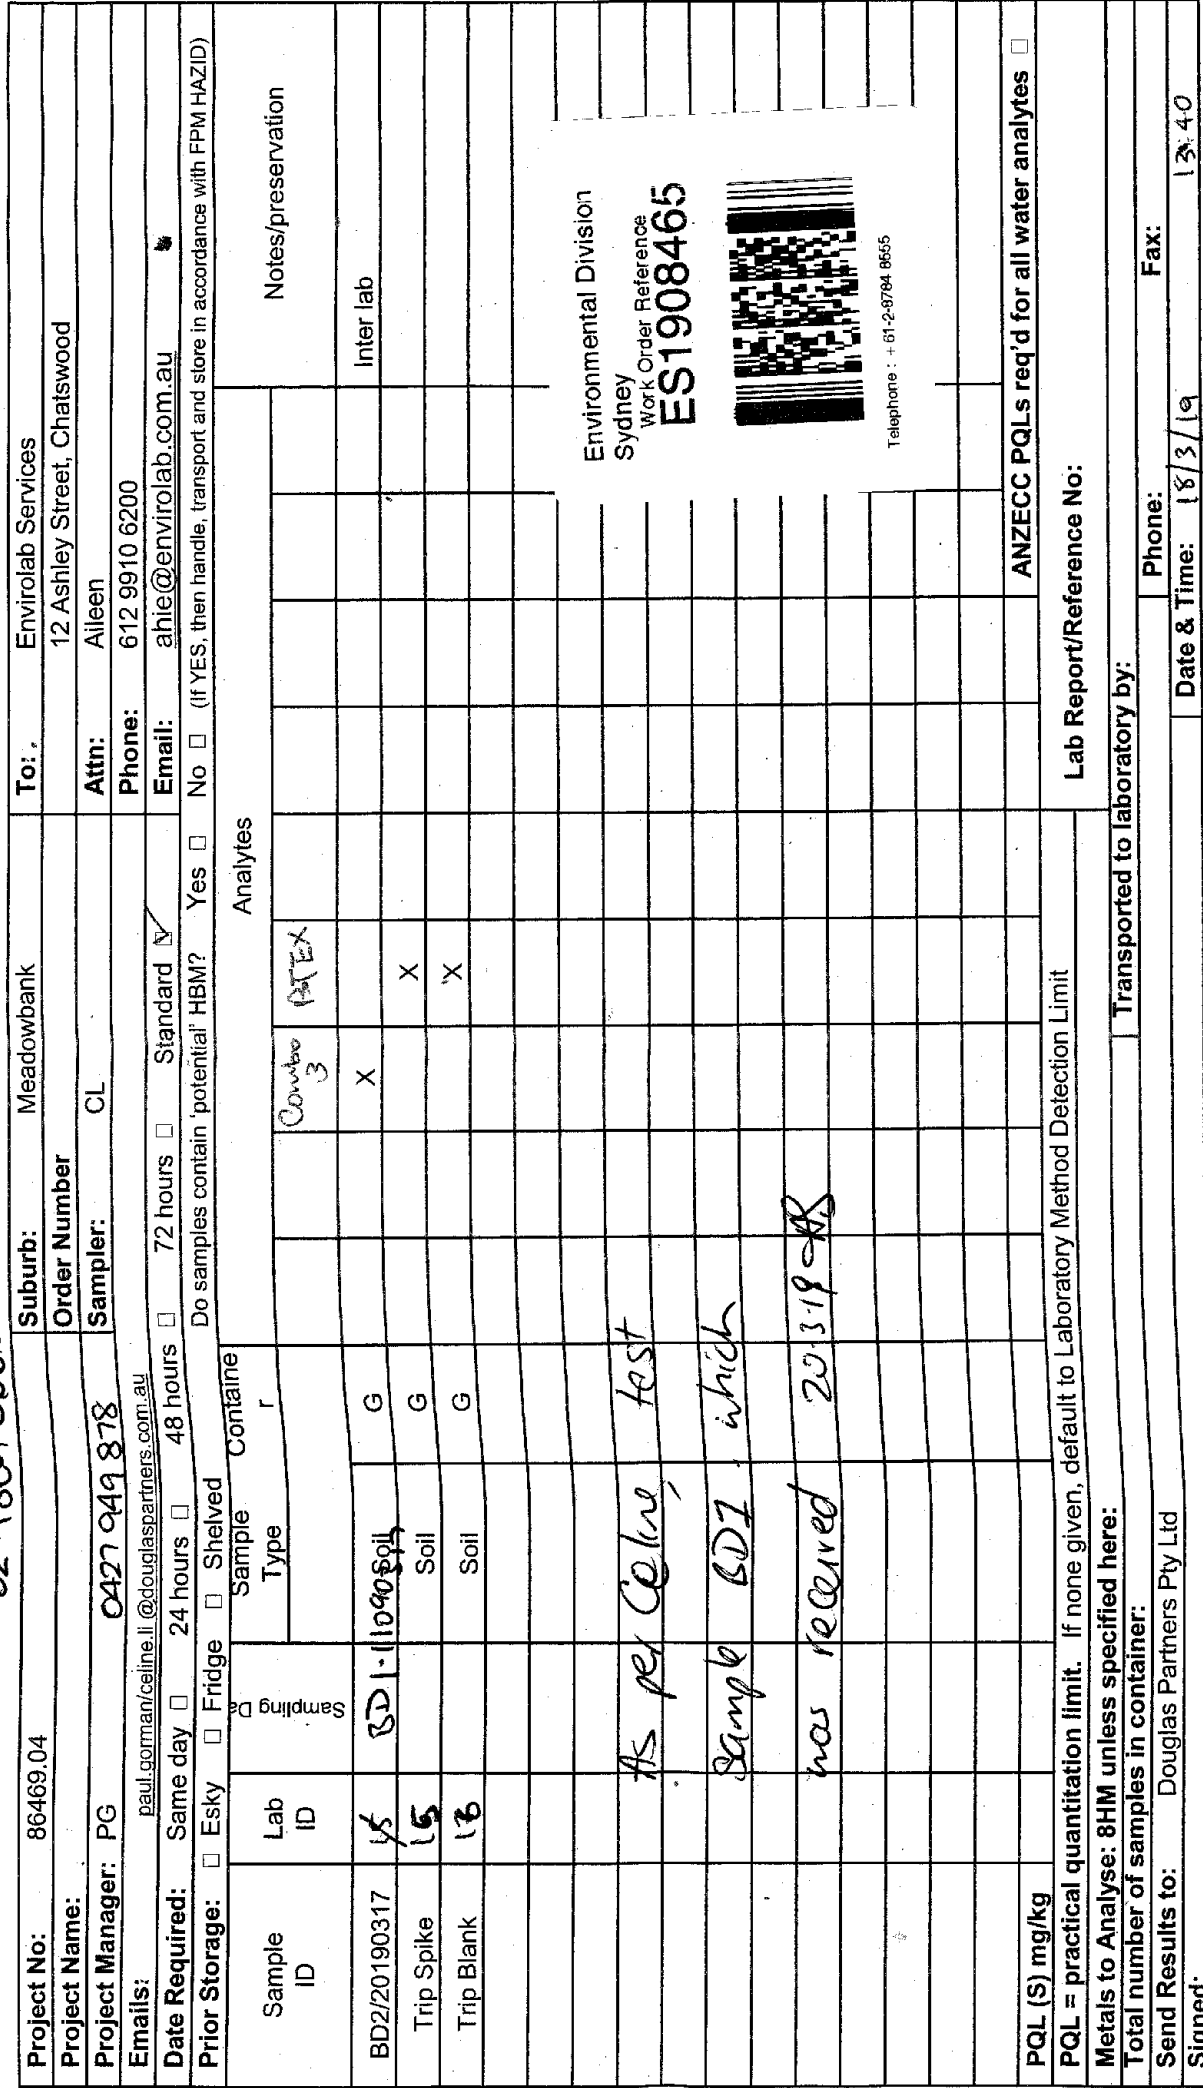 Project No: 86469.04 Suburb: Meadowbank To: Envirolab Services
Project Name: Order Number 12 Ashley Street, Chatswood
Project Manager: PG 0427 949 878 Sampler: CL Attn: Aileen
Emails: paul.gorman/celine.li @douglaspartners.com.au Phone: 612 9910 6200
Date Required: Same day □ 24 hours □ 48 hours □ 72 hours □ Standard ☑ Email: ahie@envirolab.com.au
Prior Storage: □ Esky □ Fridge □ Shelved Do samples contain 'potential' HBM? Yes □ No □ (If YES, then handle, transport and store in accordance with FPM HAZID)
Sample ID
Lab ID
Sampling Da
Sample Type
Containe r
Analytes
Combo 3
BTEX
Notes/preservation
BD2/20190317 BD1- Soil G X Inter lab
Trip Spike 15 Soil G X
Trip Blank 16 Soil G X
As per Celine, test
Sample BD1 which
was received 20-3-19
Environmental Division
Sydney
Work Order Reference
ES1908465
Telephone : + 61-2-8784 8555
PQL (S) mg/kg ANZECC PQLs req'd for all water analytes □
PQL = practical quantitation limit. If none given, default to Laboratory Method Detection Limit
Metals to Analyse: 8HM unless specified here:
Lab Report/Reference No:
Total number of samples in container:
Transported to laboratory by:
Send Results to: Douglas Partners Pty Ltd Phone: Fax:
Signed: Date & Time: 18/3/19 13:40